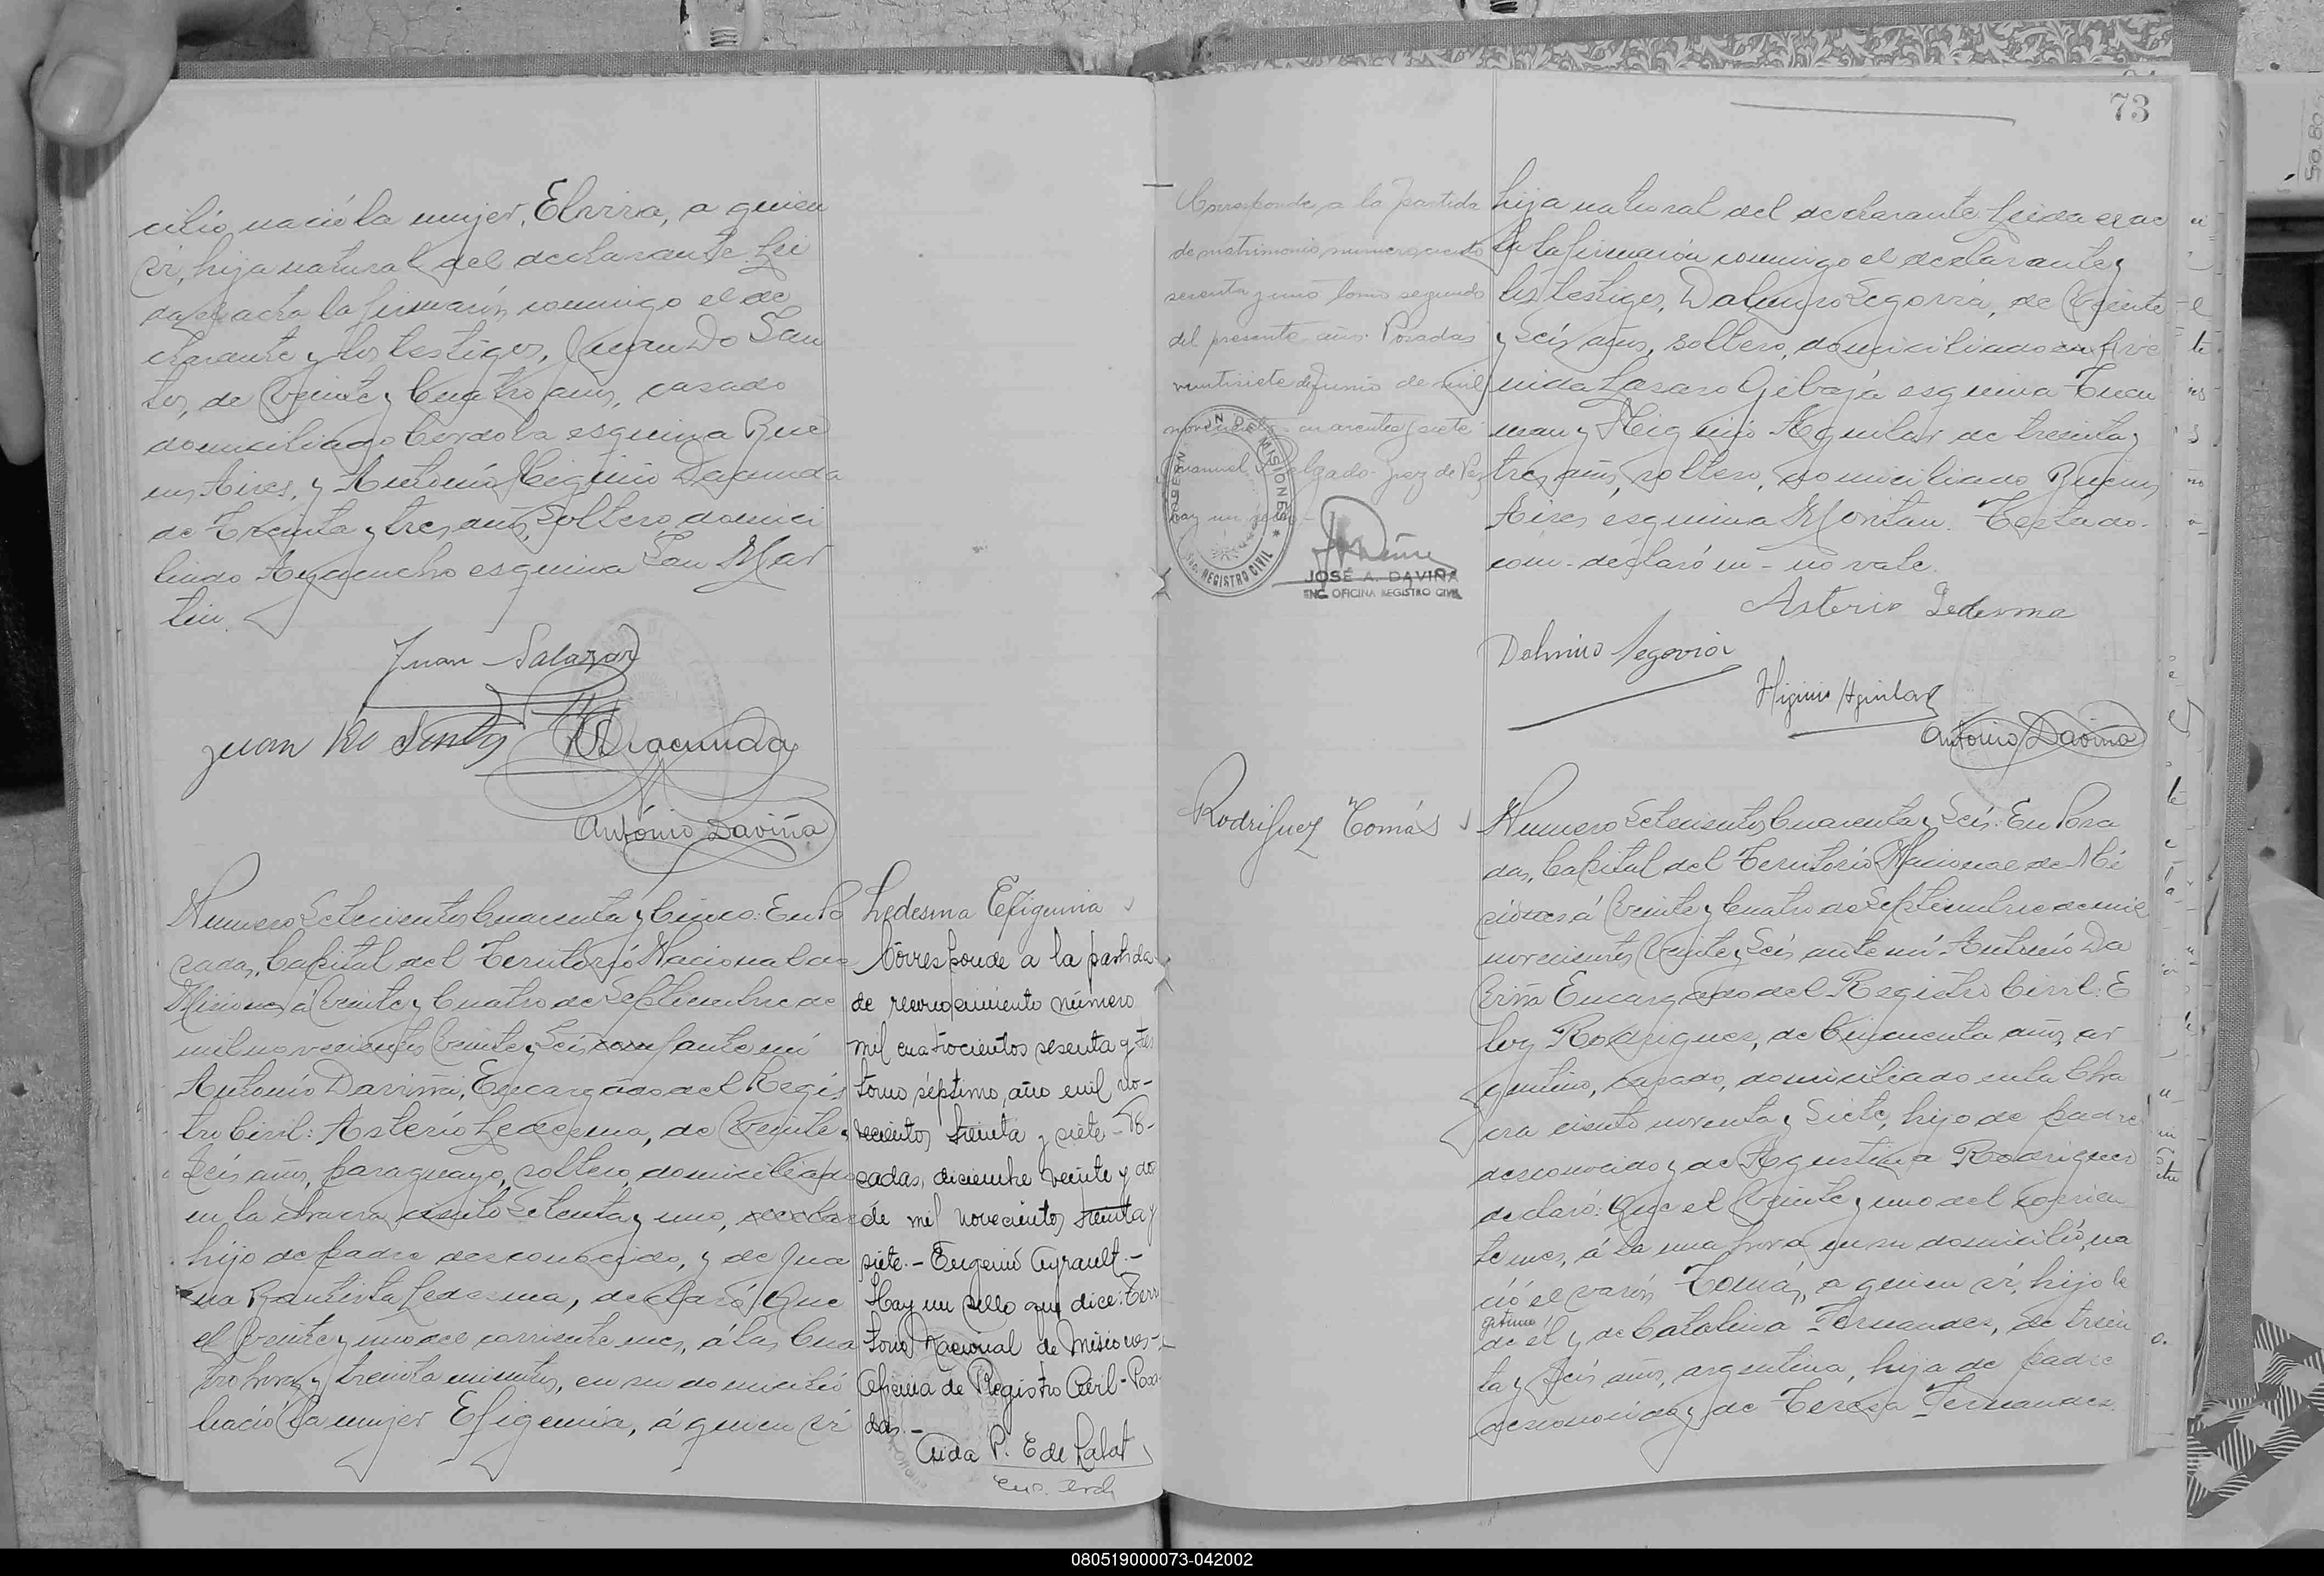 cilio nació la mujer, Elvira, a quien
ví, hija natural del declarante. Leí
da el acta la firmaron conmigo el de
clarante y los testigos, Juan Do San
tos, de Veinte y Cuatro años, casado
domiciliado Cordoba esquina Bue
nos Aires, y Antonio Higinio Dacunda
de Treinta y tres años, Soltero domici
liado Ayacucho esquina San Mar
tin.
Juan Salazar
Juan Do Santos
Dacunda
Antonio Daviña
Numero Setecientos Cuarenta y Cinco: En Po
sadas, Capital del Territorio Nacional de
Misiones á Veinte y Cuatro de Septiembre de
mil novecientos Veinte y Seis com ante mí
Antonio Daviña, Encargado del Regis
tro Civil: Asterio Ledesma, de Veinte y
Seis años, paraguayo, soltero, domiciliado
en la chacra ciento Setenta y uno,
hijo de padre desconocido, y de Jua
na Bautista Ledesma, declaró: Que
el Veinte y uno del corriente mes, á las Cua
tro horas y treinta minutos, en su domicilio
nació la mujer Efigenia, á quien ví
Ledesma Efigenia
Corresponde a la partida
de reconocimiento número
mil cuatrocientos sesenta y tres
tomo séptimo, año mil no-
vecientos treinta y siete - Po-
sadas, diciembre veinte y dos
de mil novecientos treinta y
siete. - Eugenio Ayrault. -
Hay un sello que dice: Terri
torio Nacional de Misiones -
Oficina de Registro Civil - Posa
das. -
Aida P. E de Labat
73
Corresponde a la partida
de matrimonio numero ciento
sesenta y uno tomo segundo
del presente año. Posadas
veintisiete de Junio de mil
novecientos cuarenta y siete
Manuel Delgado - Juez de Paz
hay un sello -
MISIONES
REGISTRO CIVIL
JOSÉ A. DAVIÑA
ENC. OFICINA REGISTRO CIVIL
hija natural del declarante. Leida el ac
ta la firmaron conmigo el declarante y
los testigos, Dalmiro Segovia, de Veinte
y Seis años, soltero, domiciliado en Ave
nida Lazaro Gibaja esquina Tucu
man y Higinio Aguilar de treinta y
tres años, soltero, domiciliado Buenos
Aires esquina Moritan. Testado.
com - declaró en - no vale.
Asterio Ledesma
Dalmiro Segovia
Higinio Aguilar
Antonio Daviña
Rodriguez Tomás
Numero Setecientos Cuarenta y Seis: En Posa
das, Capital del Territorio Nacional de Mi
siones á Veinte y Cuatro de Septiembre de mil
novecientos Veinte y Seis ante mí Antonio Da
viña Encargado del Registro Civil: E
loy Rodriguez, de Cincuenta años, ar
gentino, casado, domiciliado en la Cha
cra ciento noventa y Siete, hijo de padre
desconocido y de Agustina Rodriguez
declaró: Que el Veinte y uno del corrien
te mes, á la una hora en su domicilio, na
ció el varón Tomás, a quien ví, hijo le
gitimo
de él y de Catalina Fernandez, de trein
ta y Seis años, argentina, hija de padre
desconocido y de Teresa Fernandez
080519000073-042002